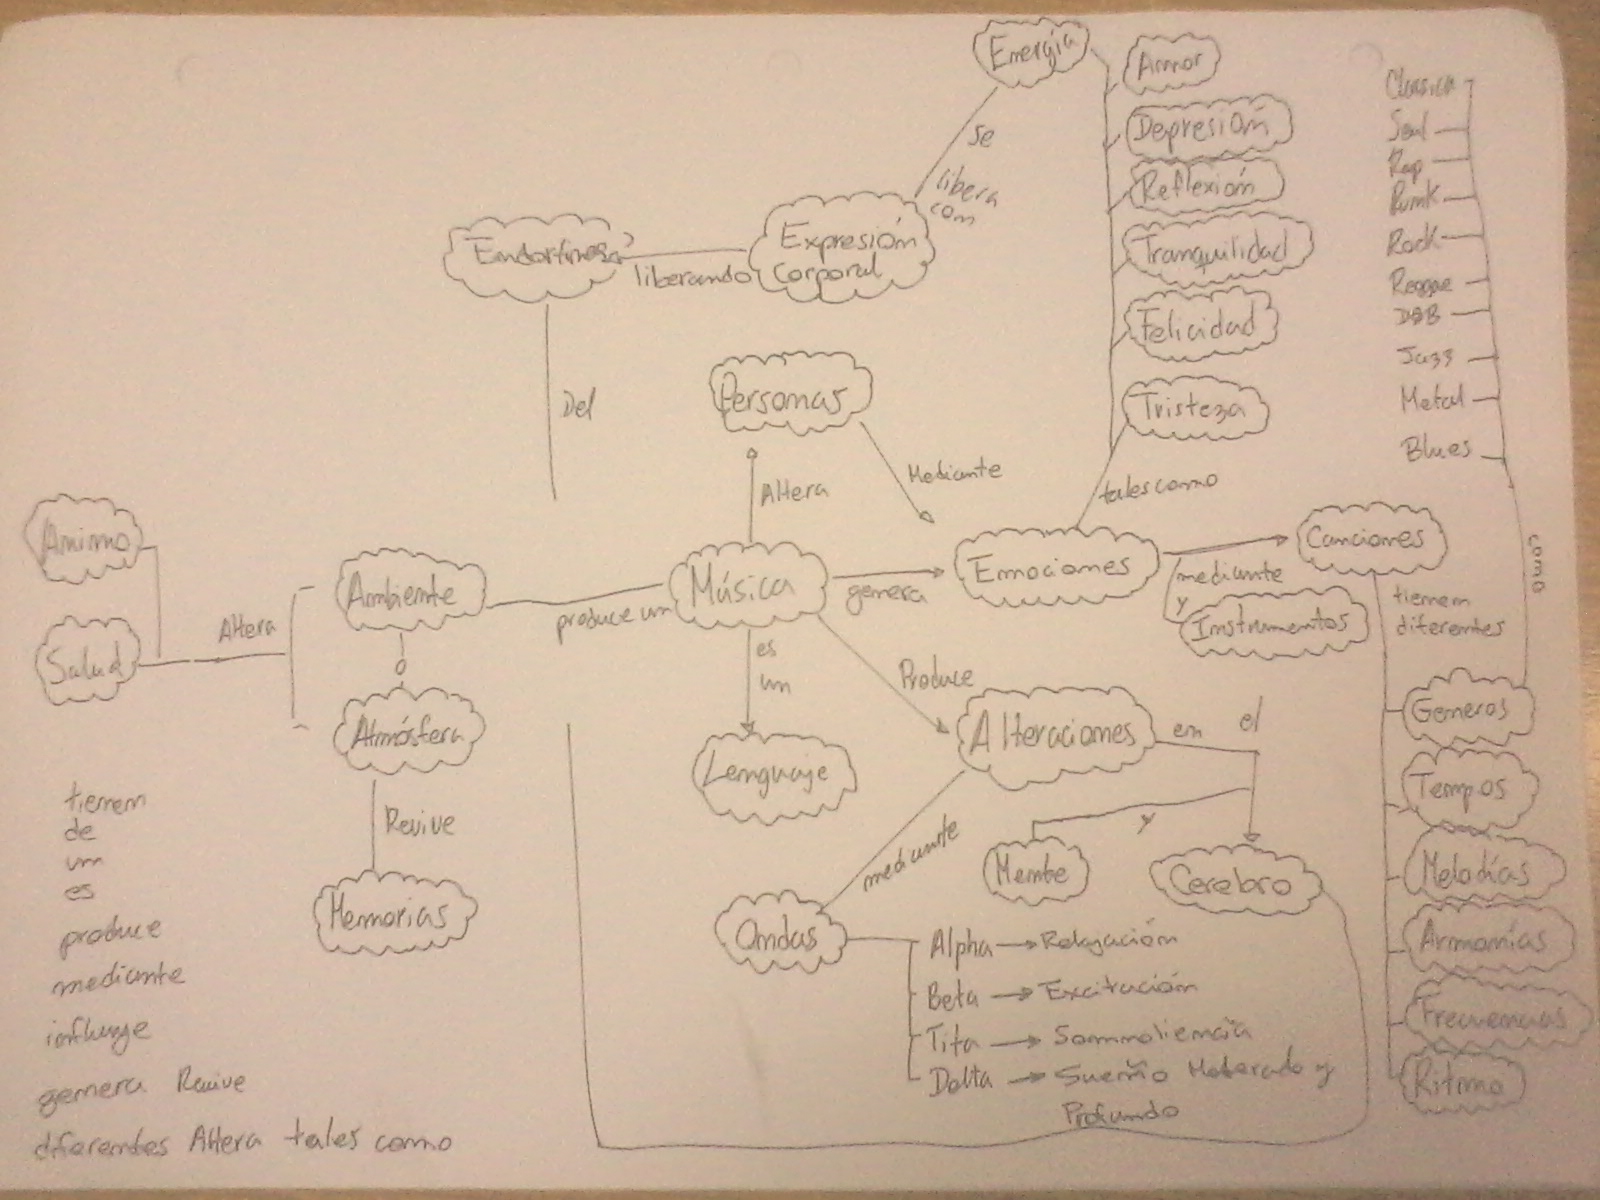 Energía
Amor
Depresión
Reflexión
Tranquilidad
Felicidad
Tristeza
se
libera
con
Expresión
corporal
liberando
Endorfinas
Del
Clasica
Soul
Rap
Punk
Rock
Reggae
D&B
Jazz
Metal
Blues
como
Personas
Altera
Mediante
tales como
Animo
Salud
Altera
Ambiente
o
Atmósfera
Revive
Memorias
produce un
Música
genera
Emociones
mediante
y
Canciones
Instrumentos
tienen
diferentes
Generos
Tempos
Melodías
Armonías
Frecuencias
Ritmo
es
un
Lenguaje
Produce
Alteraciones
en el
y
Mente
Cerebro
mediante
Ondas
Alpha → Relajación
Beta → Excitación
Tita → Somnoliencia
Delta → Sueño Moterado y
Profundo
tienen
de
un
es
produce
mediante
influye
genera Revive
diferentes Altera tales como